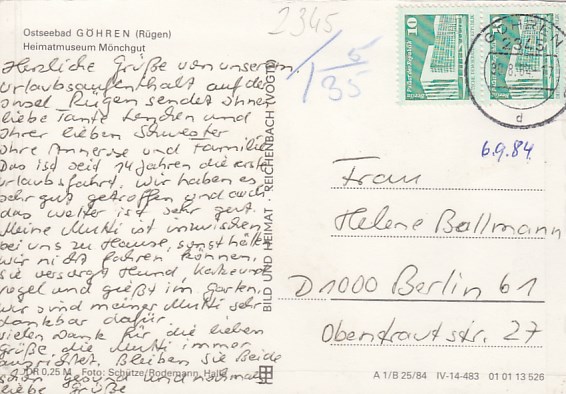 Ostseebad GÖHREN (Rügen)
Heimatmuseum Mönchgut
Herzliche Grüße von unserem
Urlaubsaufenthalt auf der
Insel Rügen sendet Ihnen
liebe Tante Lenchen und
Ihrer lieben Schwester
Ihre Annerose und Familie.
Das ist seit 14 Jahren die erste
Urlaubsfahrt. Wir haben es
sehr gut getroffen und auch
das Wetter ist sehr gut.
Meine Mutti ist inzwischen
bei uns zu Hause, sonst hätten
wir nicht fahren können,
sie versorgt Hund, Katze und
Vogel und gießt im Garten.
Wir sind meiner Mutti sehr
dankbar dafür.
Vielen Dank für die lieben
Grüße die Mutti immer
ausrichtet. Bleiben Sie Beide
schön gesund und nochmals
liebe Grüße
JDR 0,25 M Foto: Schütze/Rodemann, Halle
BILD UND HEIMAT REICHENBACH (VOGTL)
2345
5/35
10
GÖHREN
2345
d
6.9.84.
Frau
Helene Ballmann
D 1000 Berlin 61
Obentrautstr. 27
A 1/B 25/84 IV-14-483 01 01 13 526